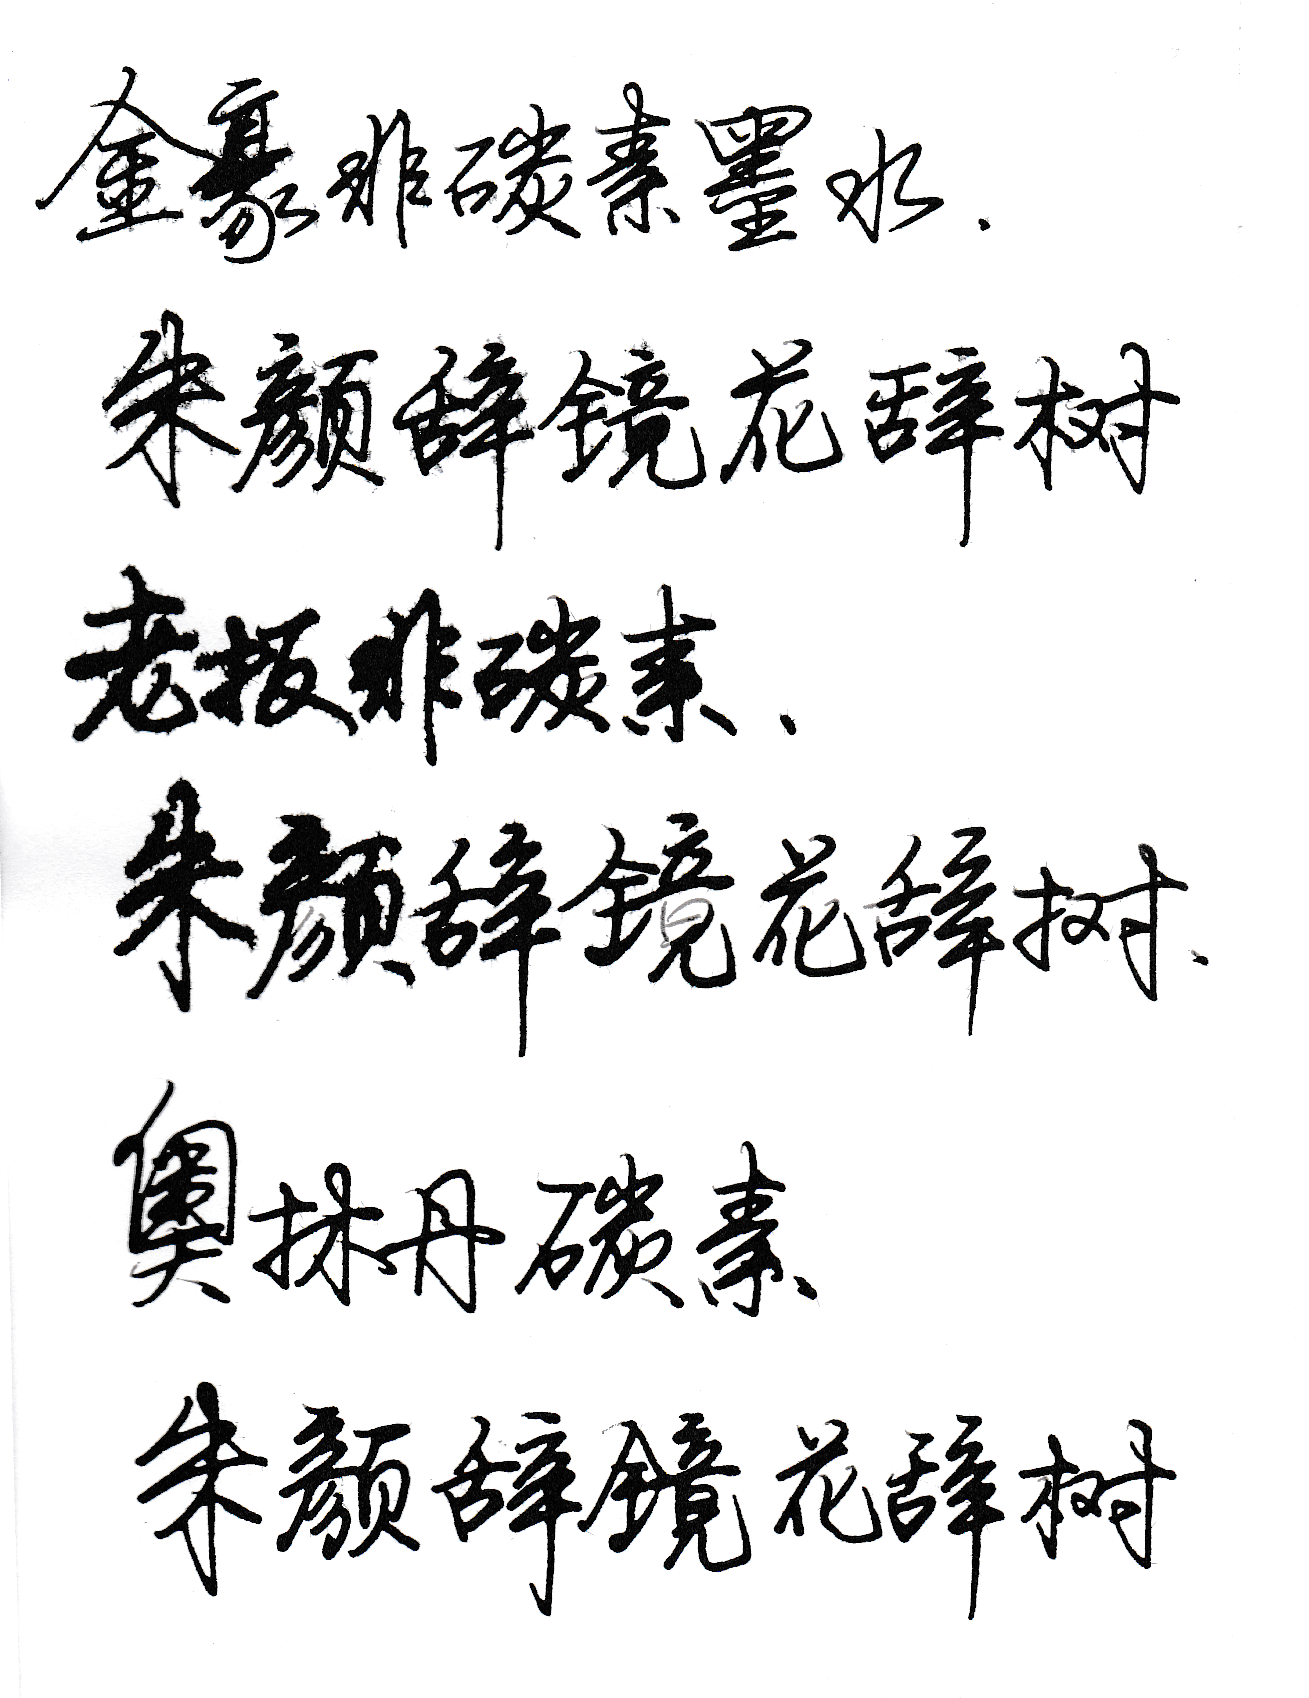 金豪非碳素墨水.
朱颜辞镜花辞树
老板非碳素.
朱颜辞镜花辞树.
奥林丹碳素
朱颜辞镜花辞树